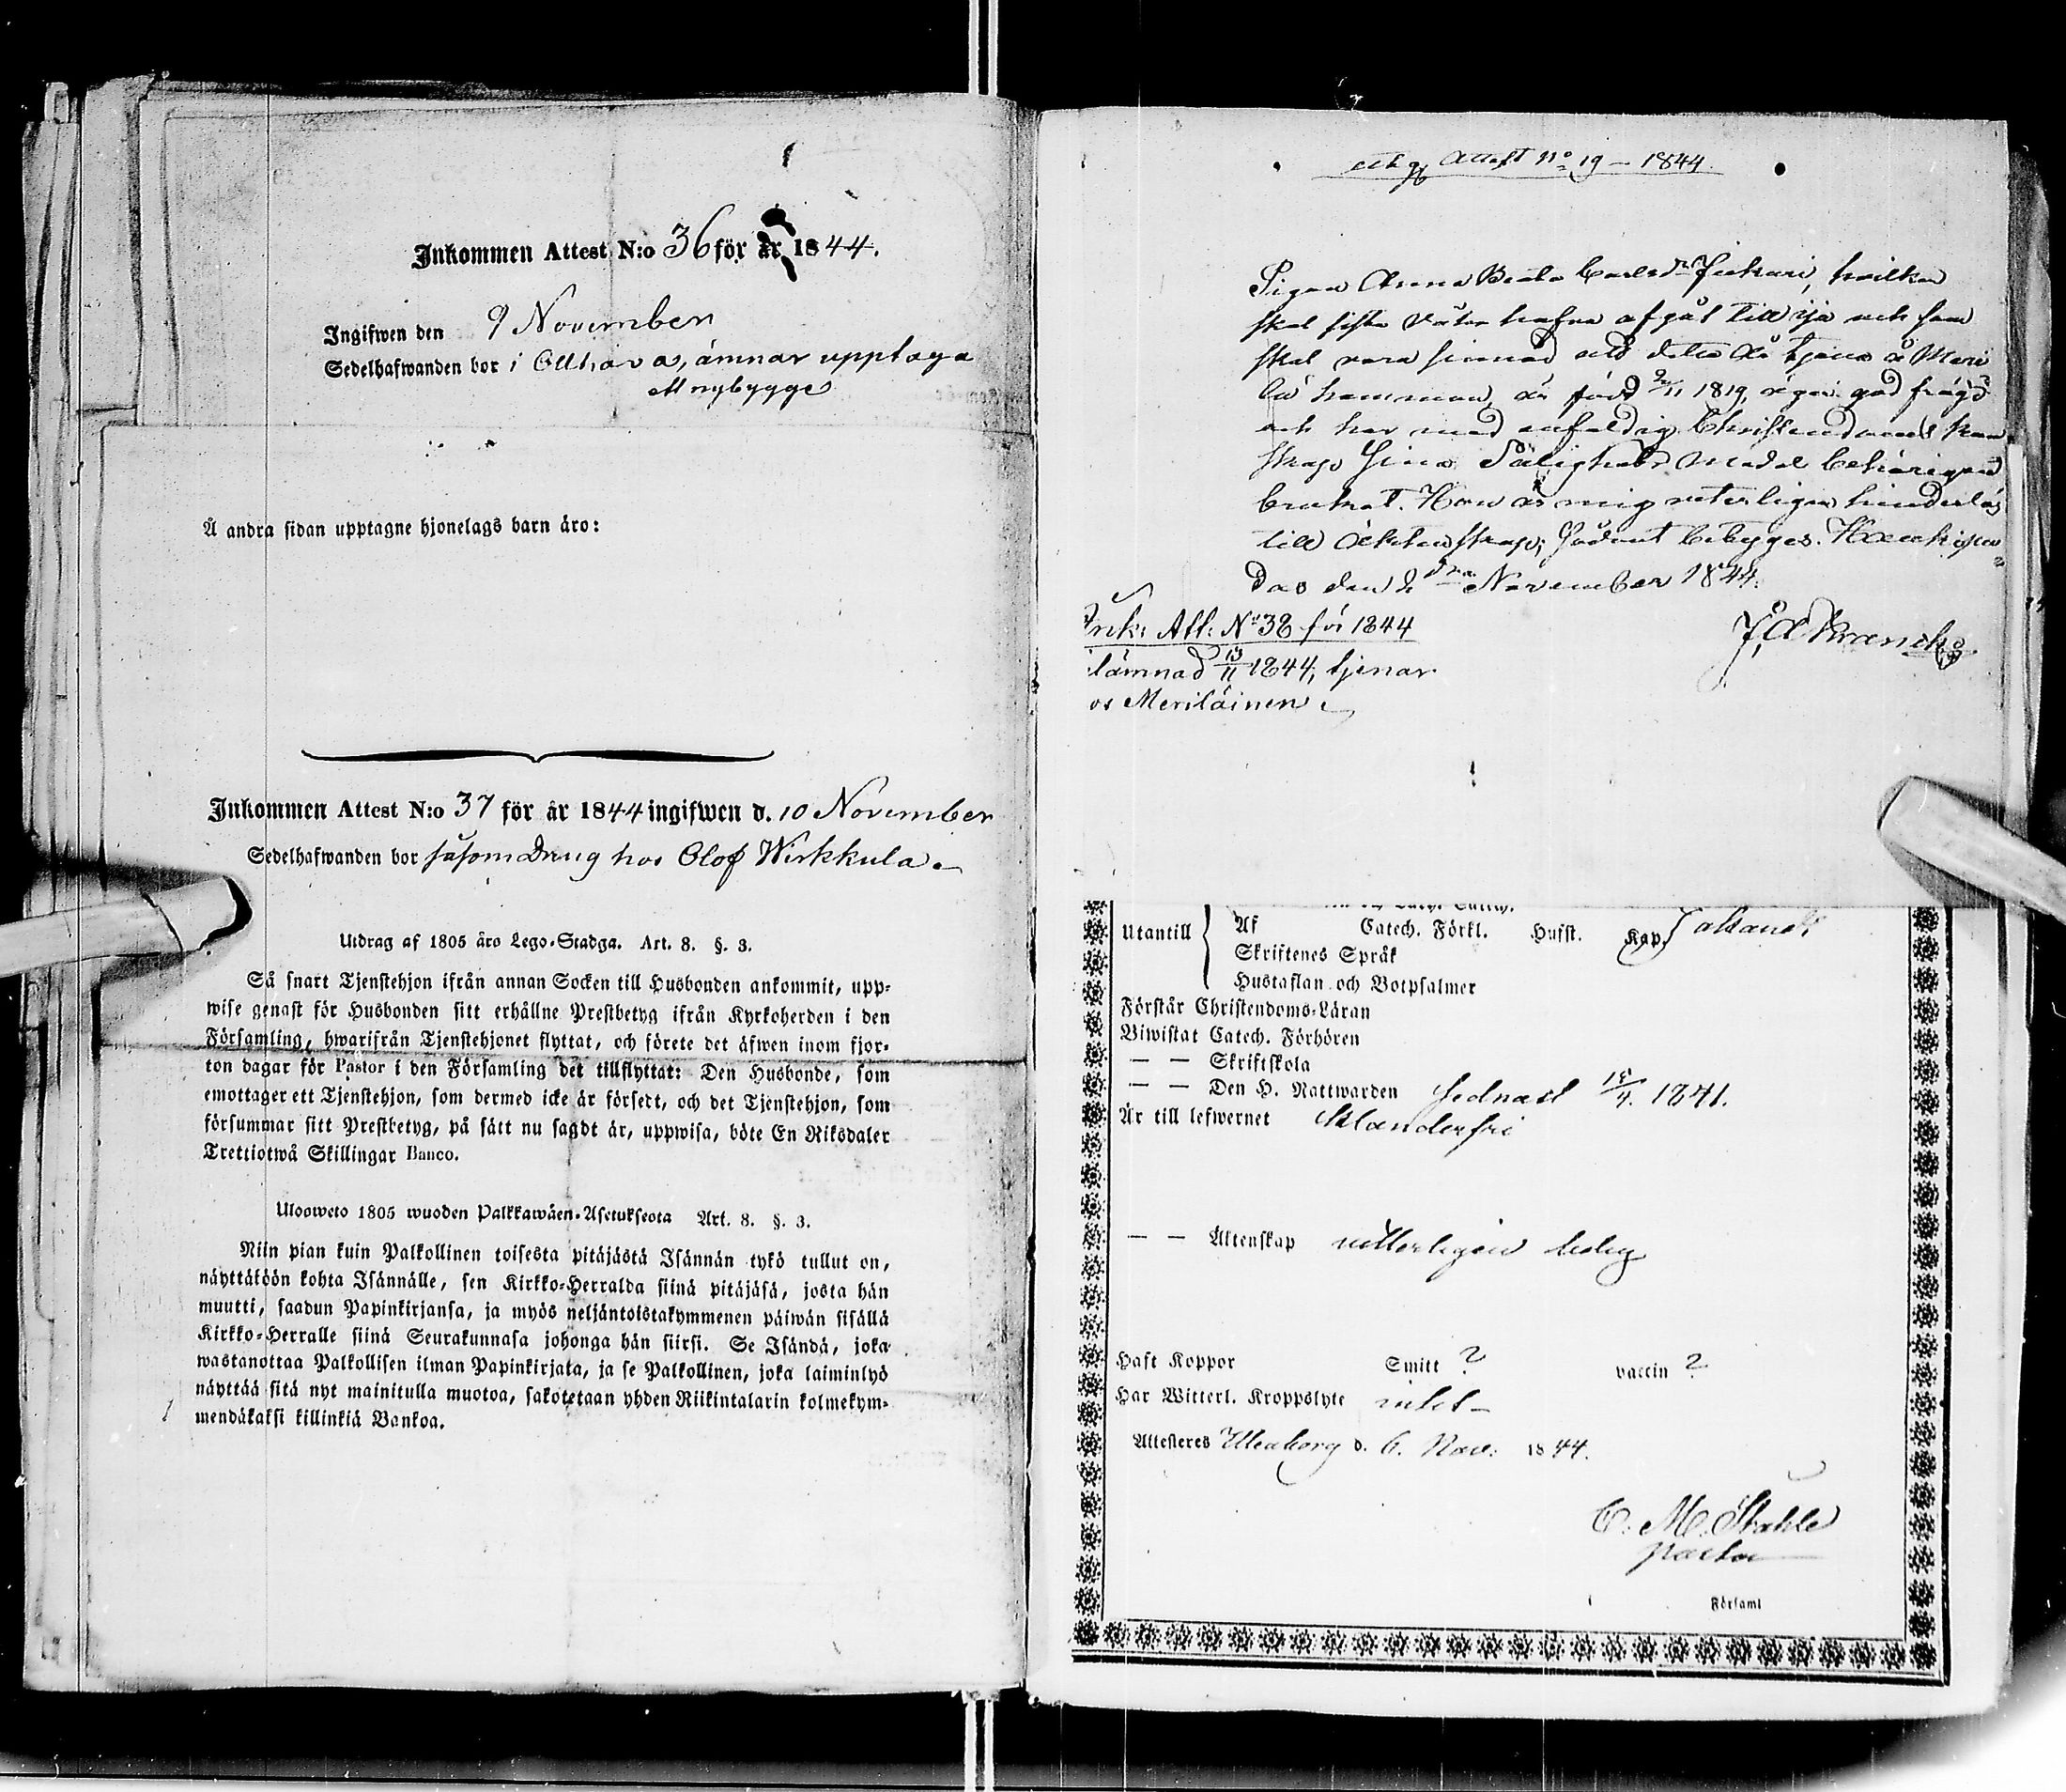 Inkommen Attest N:o 36 för år 1844.
Ingifwen den 9 November
Sedelhafwanden bor i Ollhava, ämnar upptaga
ett nybygge
Å andra sidan upptagne hjonelags barn äro:
Inkommen Attest N:o 37 för år 1844 ingifwen d. 10 November
Sedelhafwanden bor såsom Dräng hos Olof Wirkkula.
Utdrag af 1805 åro Lego-Stadga. Art. 8. §. 3.
Så snart Tjenstehjon ifrån annan Socken till Husbonden ankommit, upp-
wise genast för Husbonden sitt erhållne Prestbetyg ifrån Kyrkoherden i den
Församling, hwarifrån Tjenstehjonet flyttat, och förete det äfwen inom fjor-
ton dagar för Pastor i den Församling det tillflyttat: Den Husbonde, som
emottager ett Tjenstehjon, som dermed icke är försedt, och det Tjenstehjon, som
försummar sitt Prestbetyg, på sätt nu sagdt är, uppwisa, böte En Riksdaler
Trettiotwå Skillingar Banco.
Ulosweto 1805 wuoden Palkkawäen-Asetuksesta Art. 8. §. 3.
Niin pian kuin Palkollinen toisesta pitäjästä Isännän tykö tullut on,
näyttäköön kohta Isännälle, sen Kirkko-Herralda siinä pitäjäsä, josta hän
muutti, saadun Papinkirjansa, ja myös neljäntoistakymmenen päiwän sisällä
Kirkko-Herralle siinä Seurakunnasa johonga hän siirsi. Se Isändä, joka
wastanottaa Palkollisen ilman Papinkirjata, ja se Palkollinen, joka laiminlyö
näyttää sitä nyt mainitulla muotoa, sakotetaan yhden Riikintalarin kolmekym-
mendäkaksi killinkiä Bankoa.
Attest No 19 – 1844.
Pigan Anna Beata Carlsdr Jukuri, hvilken
skal sista vinter hafva afgåt till Ijo och som
skal vara sinnad att detta år tjena å Meri
lä hemman, är född 2/11 1819, äger god frägd
och har med enfaldig Christendoms kun
skap Sina Salighets medel behörigen
brukat. Hon är mig veterligen hinderlös
till Äktenskap; Sådant betygas. Haukipu
das den 2dra November 1844.
J. A. Franck
Ink: Att: No 38 för 1844
lämnad 13/11 1844, tjenar
os Meriläinen.
Utantill Af Catech. Förkl. Husst. Kap.
Skriftenes Språk
Hustaflan och Botpsalmer
Förstår Christendoms-Läran
Biwistat Catech. Förhören
— — Skriftskola
— — Den H. Nattwarden sednast 18/4. 1841.
Är till lefwernet klanderfri
— — Äktenskap vitterligen ledig
Haft Koppor Smitt ? vaccin ?
Har Witterl. Kroppslyte intet
Attesteres Uleaborg d. 6. Nov: 1844.
C. M. Stahle
Pastor
Församl